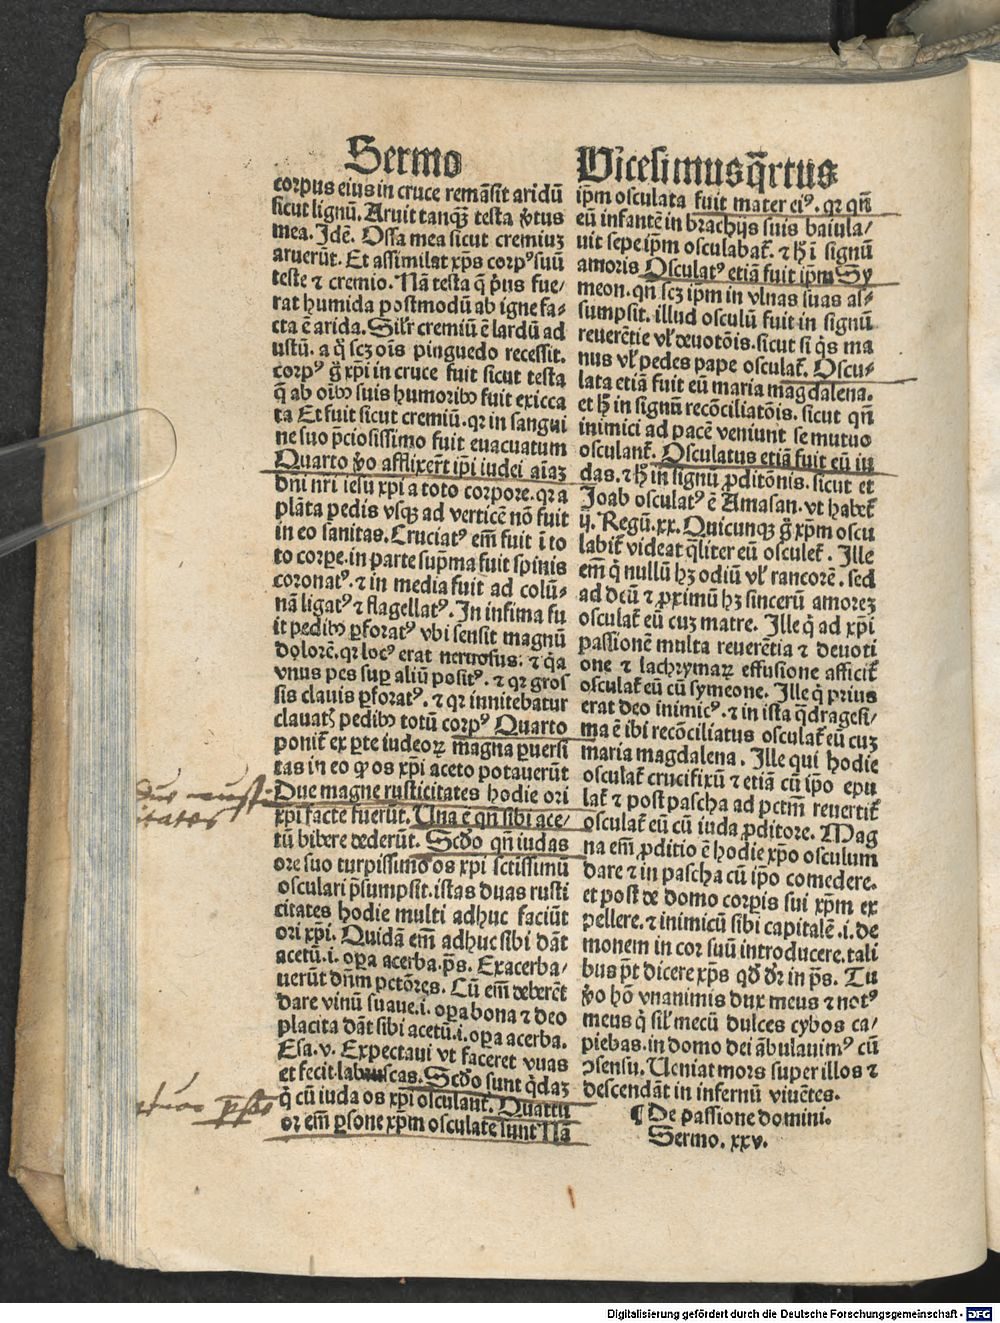 Sermo
corpus eius in cruce remãsit aridũ
sicut lignũ. Aruit tanqꝫ testa v̾tus
mea. Idẽ. Ossa mea sicut cremiuꝫ
aruerũt. Et assimilat xp̃s corpꝰ suũ
teste ⁊ cremio. Nã testa q̃ p̾us fue/
rat humida postmodũ ab igne fa⸗
cta ẽ arida. Silr̃ cremiũ ẽ lardũ ad
ustũ. a q̊ scꝫ oĩs pinguedo recessit.
Corpꝰ g̊ xp̃i in cruce fuit sicut testa
q̃ ab oĩbꝰ suis humoribꝰ fuit exicca
ta Et fuit sicut cremiũ. qꝛ in sangui
ne suo p̃ciosissimo fuit euacuatum
Quarto v̊o afflixer̃t ip̃i iudei aĩaꝫ
dñi nr̃i iesu xp̃i a toto corpore. qꝛ a
plãta pedis vsqꝫ ad verticẽ nõ fuit
in eo sanitas. Cruciatꝰ em̃ fuit ĩ to
to corꝑe. in parte sup̃ma fuit spinis
coronatꝰ. ⁊ in media fuit ad colũ⸗
nã ligatꝰ ⁊ flagellatꝰ. In infima fu
it pedibꝰ ꝑforatꝰ vbi sensit magnũ
dolorẽ. qꝛ locꝰ erat neruosus. ⁊ q̃a
vnus pes suꝑ aliũ positꝰ. ⁊ qꝛ gros
sis clauis ꝑforatꝰ. ⁊ qꝛ innitebatur
clauatꝭ pedibꝰ totũ corpꝰ Quarto
ponit̃ ex ꝑte iudeoꝝ magna ꝑuersi
tas in eo ꝙ os xp̃i aceto potauerũt
Due magne rusticitates hodie ori
xp̃i facte fuerũt. Una ẽ qñ sibi ace/
tũ bibere dederũt. Scd̾o qñ iudas
ore suo turpissimo os xp̃i sctissimũ
osculari p̃sumpsit. istas duas rusti
citates hodie multi adhuc faciũt
ori xp̃i. Quidã em̃ adhuc sibi dãt
acetũ. i. oꝑa acerba. p̃s. Exacerba/
uerũt dñm pctõres. Cũ em̃ deberẽt
dare vinũ suaue. i. oꝑa bona ⁊ deo
placita dãt sibi acetũ. i. oꝑa acerba.
Esa. v. Expectaui vt faceret vuas
et fecit labruscas. Scd̾o sunt q̃daꝫ
q̊ cũ iuda os xp̃i osculant̃. Quattu
or em̃ ꝑsone xp̃m osculate sunt Nã
Vicesimusq̃rtus
ip̃m osculata fuit mater eiꝰ. qꝛ qñ
eũ infantẽ in brachijs suis baiula/
uit sepe ip̃m osculabat̃. ⁊ h̊ ĩ signũ
amoris Osculatꝰ etiã fuit ip̃m Sy
meon. qñ scꝫ ip̃m in vlnas suas as⸗
sumpsit. illud osculũ fuit in signũ
reuerẽtie vl̾ deuotõis. sicut si q̊s ma
nus vl̾ pedes pape osculat̃. Oscu⸗
lata etiã fuit eũ maria magdalena.
et h̊ in signũ recõciliatõis. sicut qñ
inimici ad pacẽ veniunt se mutuo
osculant̃. Osculatus etiã fuit eũ iu
das. ⁊ h̊ in signũ ꝓditõnis. sicut et
Ioab osculatꝰ ẽ Amasan. vt habet̃
ij. Regũ. xx. Quicunqꝫ g̊ xp̃m oscu
labit̃ videat q̃liter eũ osculet̃. Ille
em̃ q̊ nullũ hꝫ odiũ vl̾ rancorẽ. sed
ad deũ ⁊ ꝓximũ hꝫ sincerũ amoreꝫ
osculat̃ eũ cuꝫ matre. Ille q̊ ad xp̃i
passionẽ multa reuerẽtia ⁊ deuoti
one ⁊ lachrymaꝝ effusione afficit̃
osculat̃ eũ cũ symeone. Ille q̊ prius
erat deo inimicꝰ. ⁊ in ista q̃dragesi/
ma ẽ ibi recõciliatus osculat̃ eũ cuꝫ
maria magdalena. Ille qui hodie
osculat̃ crucifixũ ⁊ etiã cũ ip̃o epu
lat̃ ⁊ post pascha ad pctm̃ reuertit̃
osculat̃ eũ cũ iuda ꝓditore. Mag
na em̃ ꝓditio ẽ hodie xp̃o osculum
dare ⁊ in pascha cũ ip̃o comedere.
et post de domo corꝑis sui xp̃m ex
pellere. ⁊ inimicũ sibi capitalẽ. i. de
monem in cor suũ introducere. tali
bus p̃t dicere xp̃s qd̾ dr̃ in p̃s. Tu
v̊o hõ vnanimis dux meus ⁊ notꝰ
meus q̊ sil̾ mecũ dulces cybos ca/
piebas. in domo dei ãbulauimꝰ cũ
ꝯsensu. Ueniat mors super illos ⁊
descendãt in infernũ viuẽtes.
¶ De passione domini.
Sermo. xxv.
Digitalisierung gefördert durch die Deutsche Forschungsgemeinschaft - DFG